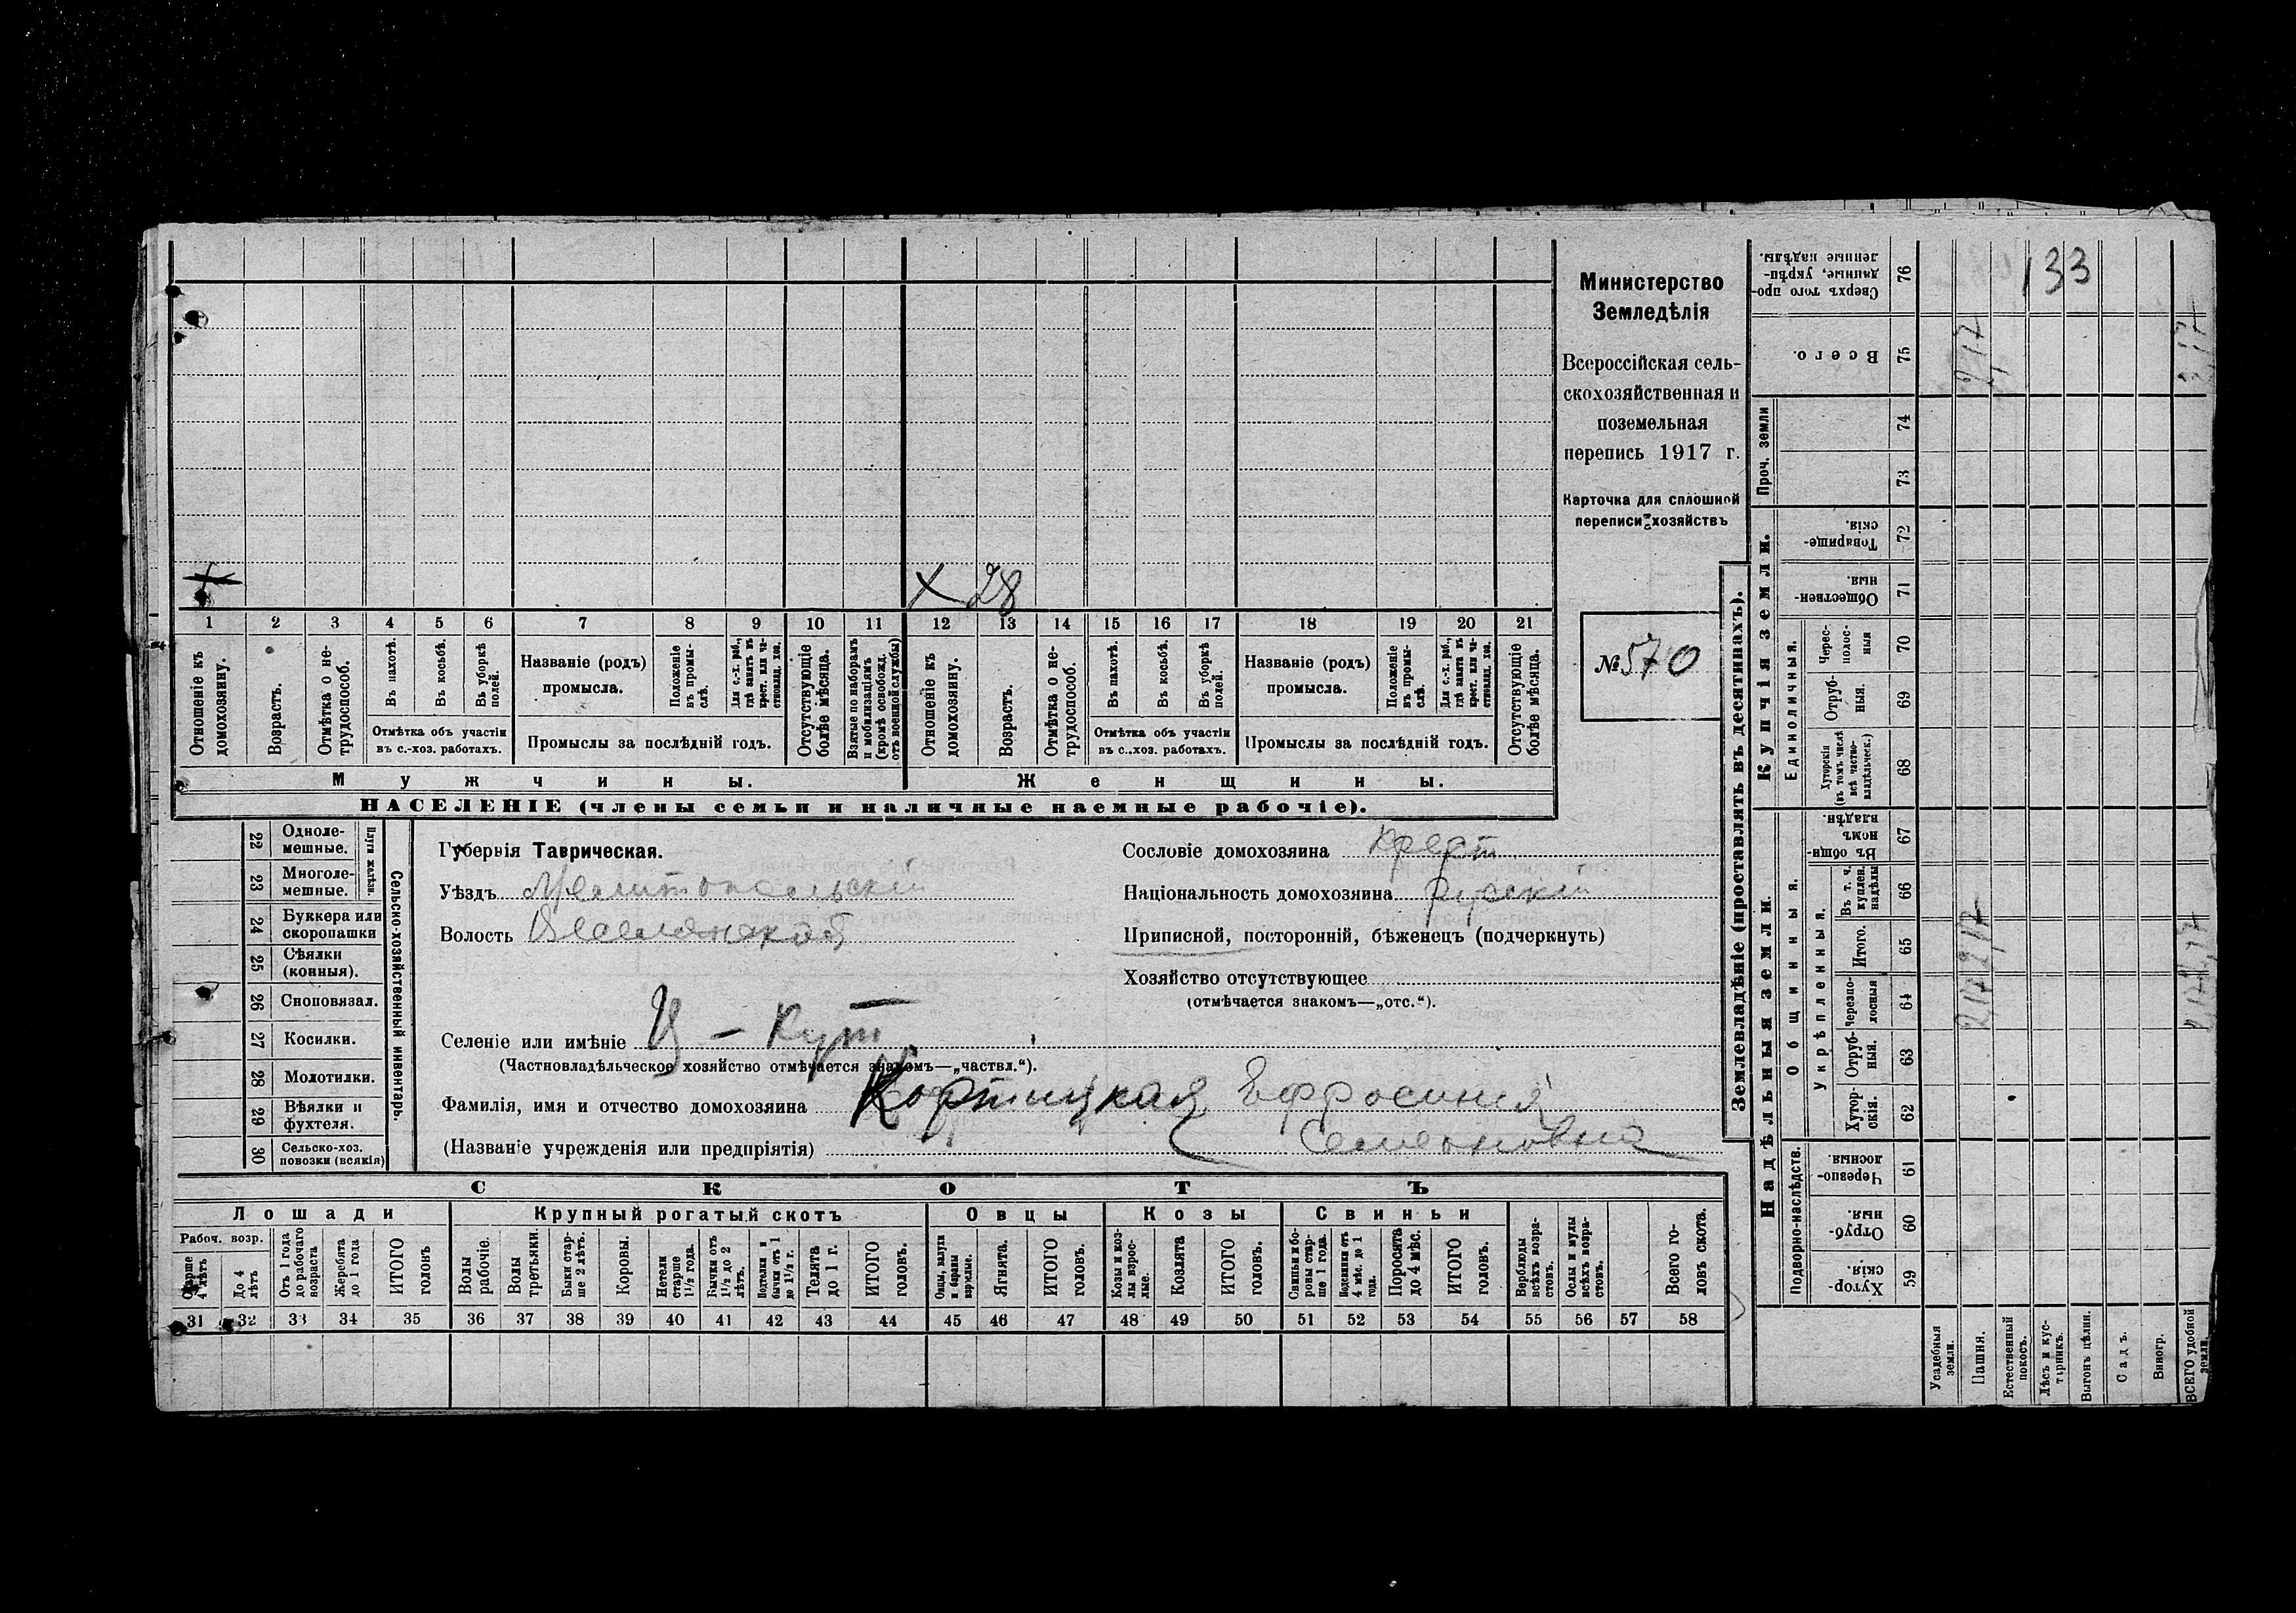 Министерство
Земледѣлія
Всероссійская сель-
скохозяйственная и
поземельная
перепись 1917 г.
Карточка для сплошной
переписи хозяйствъ
№ 570
× 28
1 2 3 4 5 6 7 8 9 10 11 12 13 14 15 16 17 18 19 20 21
Отношеніе къ домохозяину.
Возрастъ.
Отмѣтка о не-трудоспособ.
Въ пахотѣ.
Въ косьбѣ.
Въ уборкѣ полей.
Отмѣтка объ участіи
въ с.-хоз. работахъ.
Названіе (родъ)
промысла.
Положеніе въ промы-слѣ.
Для с.-х. раб., гдѣ занятъ въ крест. или ча-стновлад. хоз.
Промыслы за послѣдній годъ.
Отсутствующіе болѣе мѣсяца.
Взятые по наборамъ и мобилизаціямъ (кромѣ освобожд. отъ военной службы)
Отношеніе къ домохозяину.
Возрастъ.
Отмѣтка о не-трудоспособ.
Въ пахотѣ.
Въ косьбѣ.
Въ уборкѣ полей.
Отмѣтка объ участіи
въ с.-хоз. работахъ.
Названіе (родъ)
промысла.
Положеніе въ промы-слѣ.
Для с.-х. раб., гдѣ занята въ крест. или ча-стновлад. хоз.
Промыслы за послѣдній годъ.
Отсутствующіе болѣе мѣсяца.
Мужчины. Женщины.
НАСЕЛЕНІЕ (члены семьи и наличные наемные рабочіе).
Сельско-хозяйственный инвентарь.
Плуги желѣзн.
22 Одноле-мешные.
23 Многоле-мешные.
24 Буккера или скоропашки
25 Сѣялки (конныя).
26 Сноповязал.
27 Косилки.
28 Молотилки.
29 Вѣялки и фухтеля.
30 Сельско-хоз. повозки (всякія)
Губернія Таврическая.
Уѣздъ Мелитопольскій
Волость Веселянская
Селеніе или имѣніе Ц - Кут
(Частновладѣльческое хозяйство отмѣчается знакомъ—„частвл.“).
Сословіе домохозяина крест
Національность домохозяина русскій
Приписной, посторонній, бѣженецъ (подчеркнуть)
Хозяйство отсутствующее
(отмѣчается знакомъ—„отс.“).
Фамилія, имя и отчество домохозяина Кортицкая Ефросинія
(Названіе учрежденія или предпріятія) Семеновна
СКОТЪ
Лошади Крупный рогатый скотъ Овцы Козы Свиньи
Рабоч. возр.
Старше 4 лѣтъ
До 4 лѣтъ
Отъ 1 года до рабочаго возраста
Жеребята до 1 года
ИТОГО головъ
Волы рабочіе.
Волы третьяки.
Быки стар-ше 2 лѣтъ.
Коровы.
Нетели старше 1½ года.
Бычки отъ 1½ до 2 лѣтъ.
Подтелки и бычки отъ 1 до 1½ г.
Телята до 1 г.
ИТОГО головъ.
Овцы, валухи и бараны взрослые.
Ягнята.
ИТОГО головъ.
Козы и коз-лы взрос-лые.
Козлята
ИТОГО головъ.
Свиньи и бо-ровы стар-ше 1 года.
Подсвинки отъ 4 мѣс. до 1 года.
Поросята до 4 мѣс.
ИТОГО головъ.
Верблюды всѣхъ возра-стовъ.
Ослы и мулы всѣхъ возра-стовъ.
Всего го-ловъ скота.
31 32 33 34 35 36 37 38 39 40 41 42 43 44 45 46 47 48 49 50 51 52 53 54 55 56 57 58
Землевладѣніе (проставлять въ десятинахъ).
Надѣльныя земли.
Купчія земли.
Проч. земли
Подворно-наслѣдств.
Общинныя.
Укрѣпленныя.
Единоличныя.
Хутор-скія. 59
Отруб-ныя. 60
Черезпо-лосныя. 61
Хутор-скія. 62
Отруб-ныя. 63
Черезпо-лосныя 64
Итого. 65
Въ т. ч. куплен. надѣлы 66
Въ общин-номъ владѣн. 67
Хуторскія (въ томъ числѣ всѣ частно-владѣльческ.) 68
Отруб-ныя. 69
Черес-полос-ныя 70
Обществен-ныя. 71
Товарище-скія. 72
73
74
Всего. 75
Сверхъ того про-данные, укрѣп-ленные надѣлы. 76
133
Усадебныя земли.
Пашня. 2,17 2,17 2,17
Естественный покосъ.
Лѣсъ и кус-тарникъ.
Выгонъ цѣлин.
Садъ.
Виногр.
ВСЕГО удобной земли. 2,17 2,17 2,17